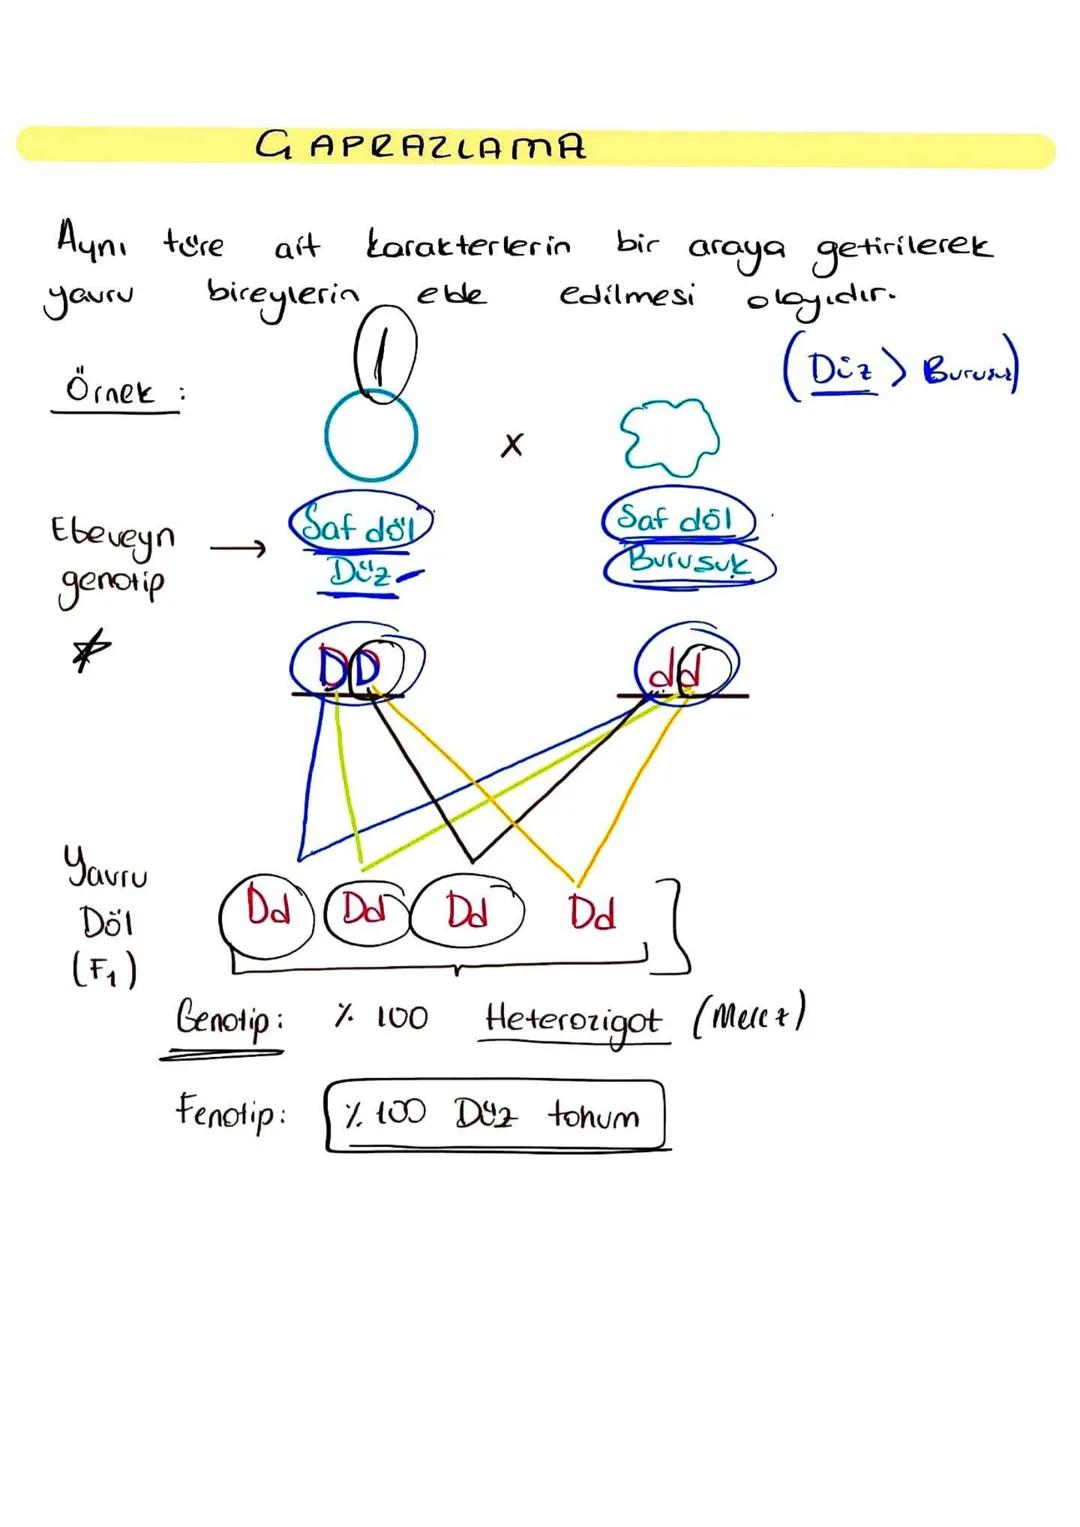 ÇAPRAZLAMA
Aynı türe ait karakterlerin bir araya getirilerek
yavru bireylerin elde edilmesi olayıdır.
1
(Düz > Buruşuk)
Örnek :
x
Ebeveyn → Saf döl Saf döl
genotip Düz Buruşuk
DD dd
Yavru
Döl Dd Dd Dd Dd
(F1)
Genotip: % 100 Heterozigot (Melez)
Fenotip: % 100 Düz tohum